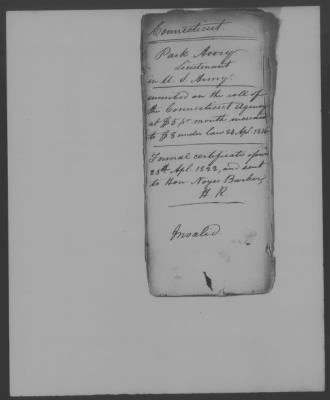 Connecticut
Park Avery
Lieutenant
in U. S. Army.
inscribed on the roll of
the Connecticut Agency
at $5 pr month, increased
to $8 under law 24 Apl. 1816
Formal certificate
28th Apl. 1823, and sent
to Hon. Noyes Barber,
H. R
Invalid